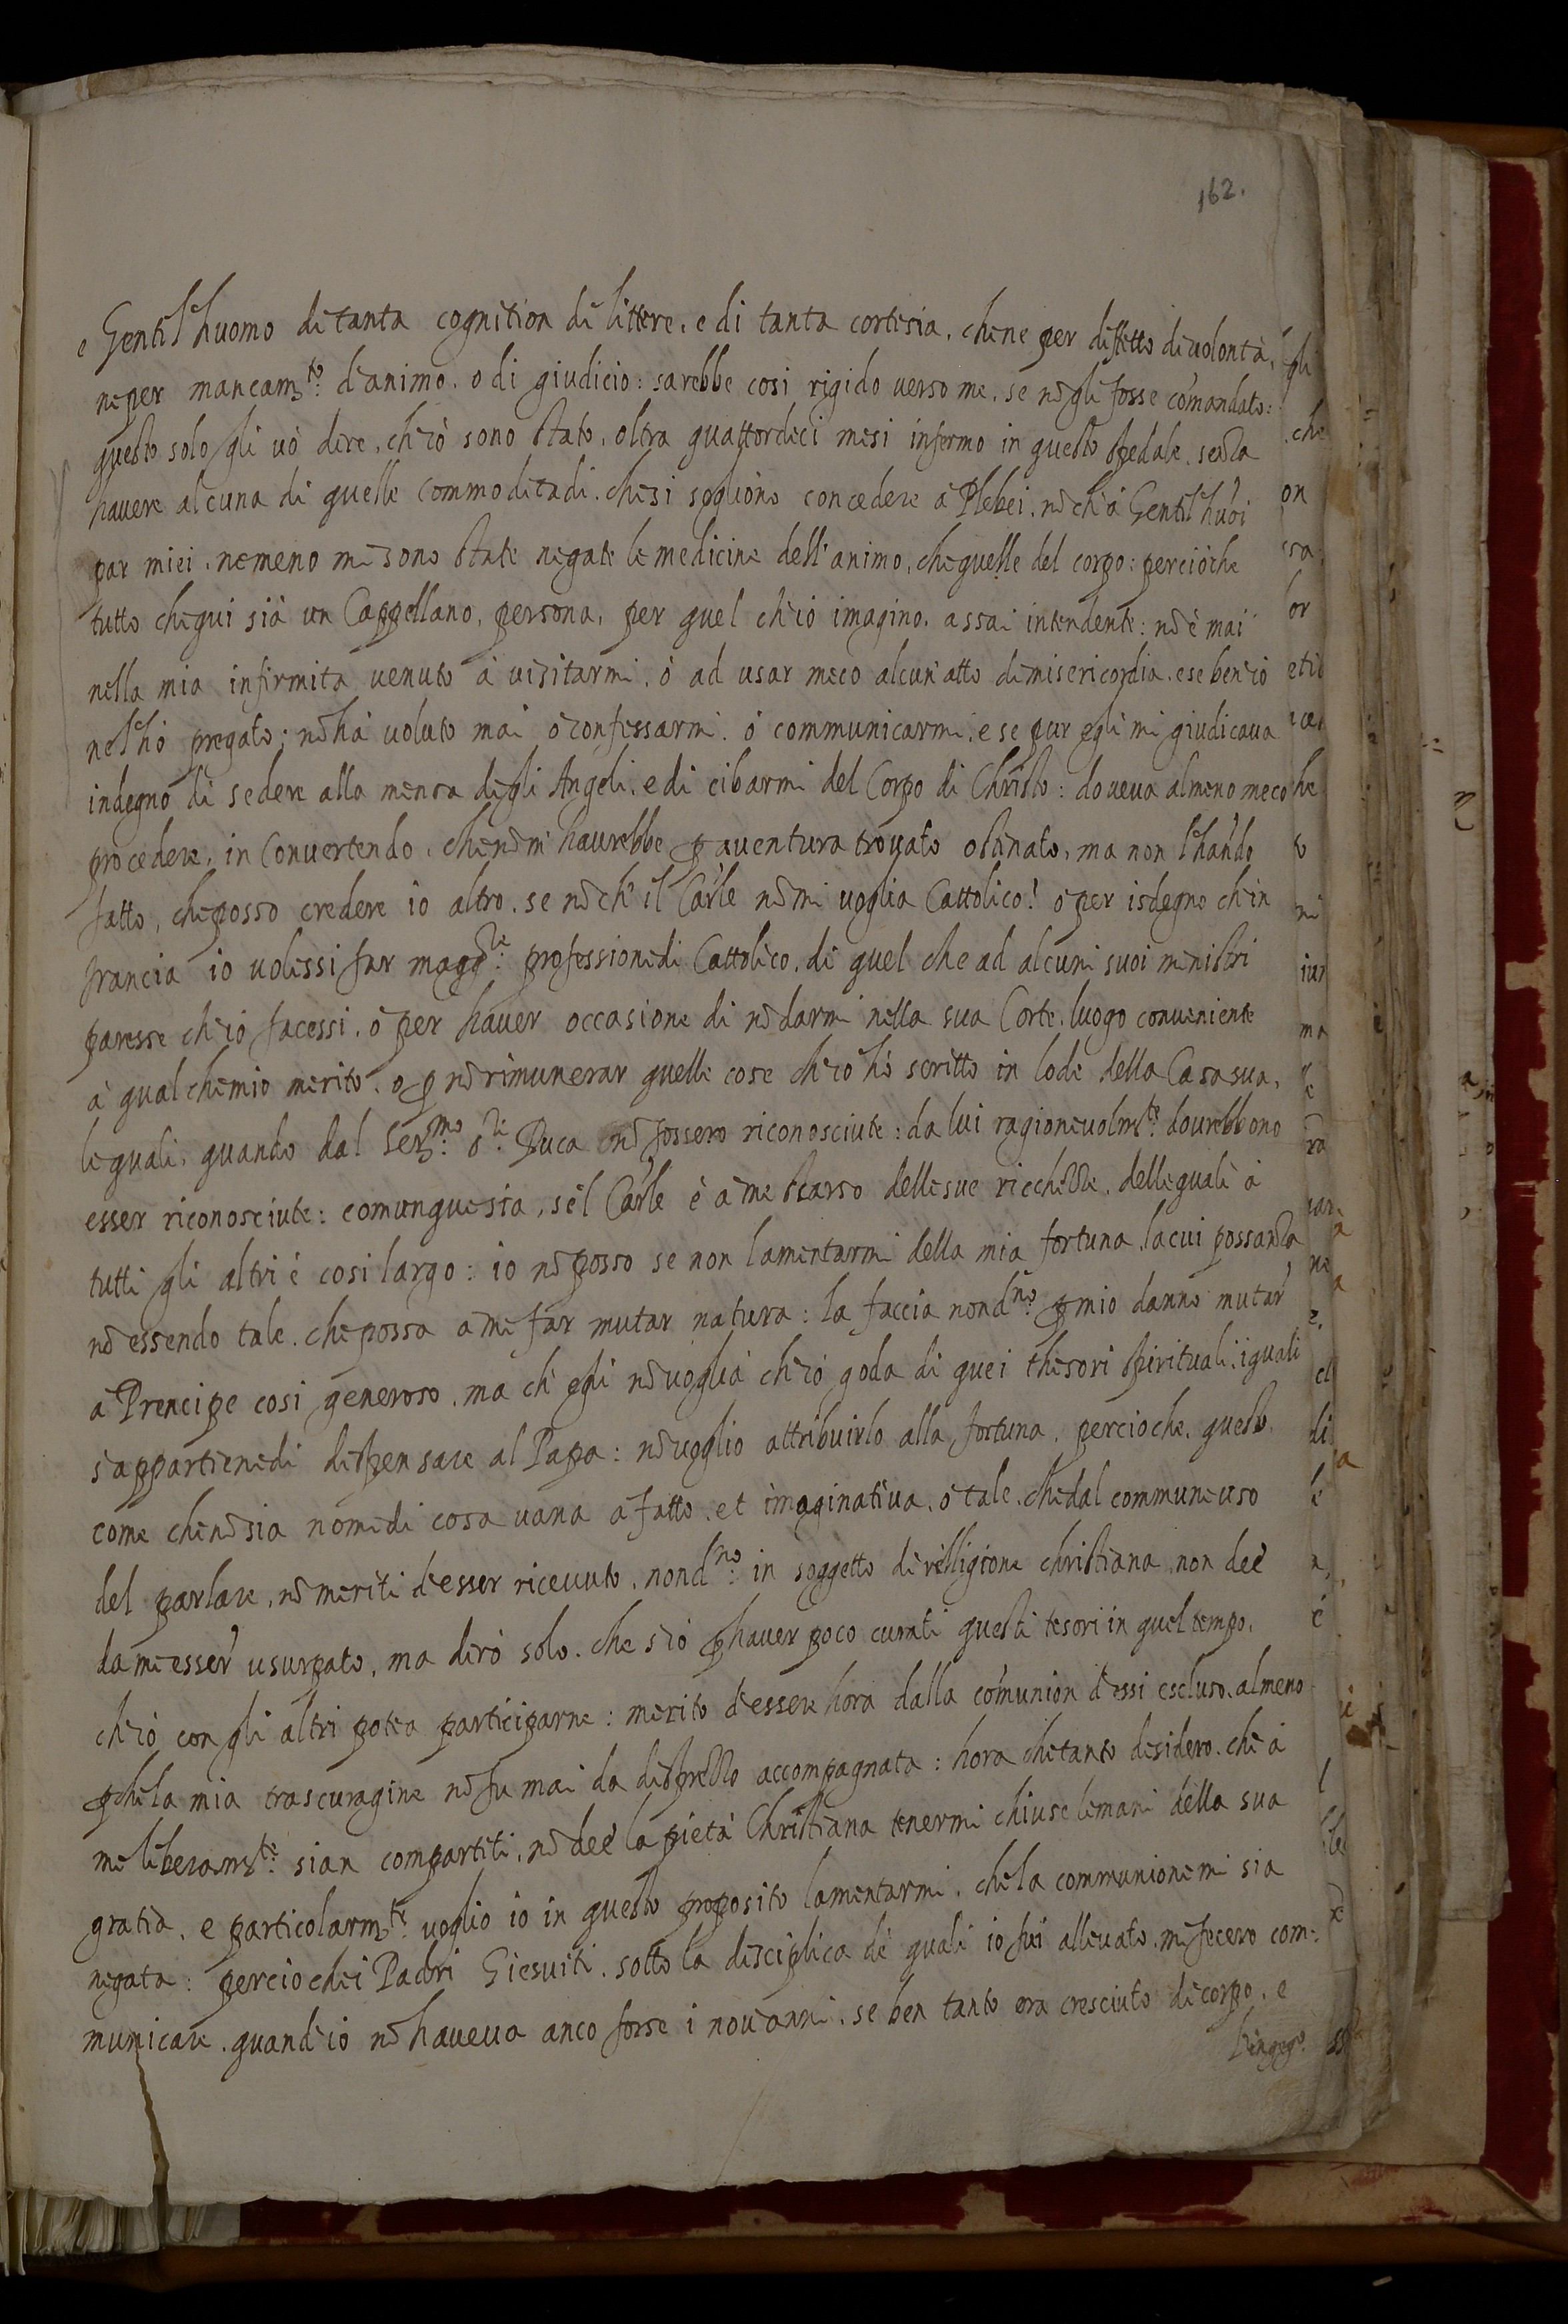 162.
e Gentil'huomo di tanta cognition di littere, e di tanta cortesia, che ne per diffetto di volontà,
ne per mancamto: d'animo, o di giudicio: sarebbe cosi rigido verso me, se nõ gli fosse cõmandato:
questo solo gli vò dire, ch'iò sono stato, oltra quattordeci mesi infermo in questo spedale, senza
havere alcuna di quelle commoditadi, che si sogliono concedere à Plebei, nõ ch'à Gentil'huõi
par miei, ne meno mi sono state negate le medicine dell'animo, che quelle del corpo: perciòche
tutto che qui sià un Cappellano, persona, per quel ch'iò imagino, assai intendente: nõ è mai
nella mia infirmita venuto à visitarmi, ò ad usar meco alcun'atto di misericordia, e se ben'iò
nel'hò pregato; nõ hà voluto mai ò confessarmi, ò communicarmi, e se pur egli mi giudicava
indegno di sedere alla mensa degli Angeli, e di cibarmi del Corpo di Christo: doveva almeno meco
procedere, in Convertendo, che nõ m'havrebbe ꝑ aventura trovato ostinato, ma non l'hañdo
fatto, che posso credere io altro, se nõ ch'il Carle nõ mi voglia Cattolico! ò per isdegno ch'in
francia io volessi far maggre: professione di Cattolico, di quel che ad alcuni suoi ministri
paresse ch'iò facessi, ò per haver occasione di nõ darmi nella sua Corte, luogo conveniente
à qualche mio merito, o ꝑ nõ rimunerar quelle cose ch'iò hò scritto in lode della Casa sua,
le quali, quando dal Sermo: sre: Duca nõ fossero riconosciute: da lui ragionevolmte: dovrebbono
esser riconosciute: comunque sia, s'el Carle è à me scarso delle sue ricchezze, delle quali à
tutti gli altri è cosi largo: io nõ posso se non lamentarmi della mia fortuna, la cui possanza
nõ essendo tale, che possa a me far mutar natura: la faccia nondno: ꝑ mio danno mutar
à Prencipe cosi generoso, ma ch'egli nõ voglia ch'iò goda di quei thesori spirituali, i quali
s'appartiene di dispensare al Papa: nõ voglio attribuirlo alla fortuna, percioche, questo
come che nõ sia nome di cosa vana a fatto, et imaginativa, ò tale, che dal commune uso
del parlare, nõ meriti d'esser ricevuto, nondno: in soggetto di relligione christiana, non deè
da me esser usurpato, ma dirò solo, che s'iò ꝑ haver poco curati questi tesori in quel tempo,
ch'iò con gli altri potea participarne: merito d'essere hora dalla cõmunion d'essi escluso, almeno
ꝑche la mia trascuragine nõ fu mai da disprezzo accompagnata: hora che tanto desidero, chè à
me liberamte: sian compartiti, nõ deè la pietà Christiana tenermi chiuse le mani della sua
gratia, e particolarmte: voglio io in questo proposito lamentarmi, che la communione mi sia
negata: percioche i Padri Giesuiti, sotto la disciplica de' quali io fui allevato, mi fecero com-
municare, quand'io nõ haveva anco forse i nov'anni, se ben tanto era cresciuto di corpo, e